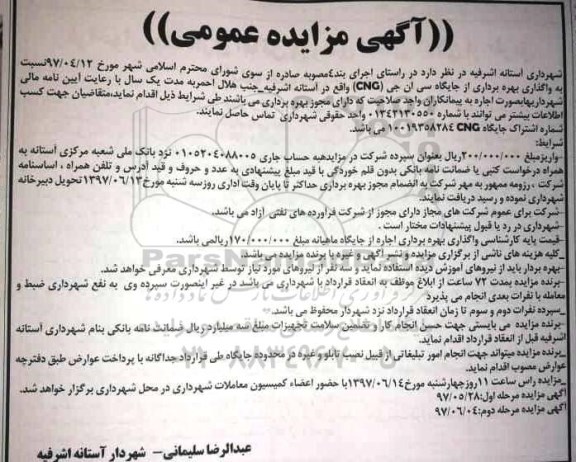 ((آگهی مزایده عمومی))
شهرداری آستانه اشرفیه در نظر دارد در راستای اجرای بند4مصوبه صادره از سوی شورای محترم اسلامی شهر مورخ 97/04/12نسبت
به واگذاری بهره برداری از جایگاه سی ان جی (CNG) واقع در آستانه اشرفیه_جنب هلال احمربه مدت یک سال با رعایت آیین نامه مالی
شهرداریهابصورت اجاره به پیمانکاران واجد صلاحیت که دارای مجوز بهره برداری می باشند طی شرایط ذیل اقدام نماید،متقاضیان جهت کسب
اطلاعات بیشتر می توانند با شماره 01342130550 واحد حقوقی شهرداری تماس حاصل نمایند.
شماره اشتراک جایگاه CNG 10019358284 می باشد.
شرایط:
-واریزمبلغ 200/000/000ریال بعنوان سپرده شرکت در مزایدهبه حساب جاری 0105204088005 نزد بانک ملی شعبه مرکزی آستانه به
همراه درخواست کتبی یا ضمانت نامه بانکی بدون قلم خوردگی با قید مبلغ پیشنهادی به عدد و حروف و قید آدرس و تلفن همراه ، اساسنامه
شرکت ، رزومه ممهور به مهر شرکت به انضمام مجوز بهره برداری حداکثر تا پایان وقت اداری روزسه شنبه مورخ1397/06/13تحویل دبیرخانه
شهرداری نموده و رسید دریافت نمایند.
-شرکت برای عموم شرکت های مجاز دارای مجوز از شرکت فرآورده های نفتی آزاد می باشد.
-شهرداری در رد یا قبول پیشنهادات مختار است .
-قیمت پایه کارشناسی واگذاری بهره برداری اجاره از جایگاه ماهیانه مبلغ 170/000/000ریالمی باشد.
-کلیه هزینه های ناشی از برگزاری مزایده و نشر آگهی و غیره با برنده مزایده می باشد.
-بهره بردار باید از نیروهای آموزش دیده استفاده نماید و سه نفر از نیروهای مورد نیاز توسط شهرداری معرفی خواهد شد.
-برنده مزایده بمدت 72 ساعت از ابلاغ موظف به انعقاد قرارداد با شهرداری می باشد در غیر اینصورت سپرده وی به نفع شهرداری ضبط و
معامله با نفرات بعدی انجام می پذیرد
-سپرده نفرات دوم و سوم تا زمان انعقاد قرارداد نزد شهردار محفوظ می باشد.
-برنده مزایده می بایستی جهت حسن انجام کار و تضمین سلامت تجهیزات مبلغ سه میلیارد ریال ضمانت نامه بانکی بنام شهرداری آستانه
اشرفیه قبل از انعقاد قرارداد اقدام نماید.
-برنده مزایده میتواند جهت انجام امور تبلیغاتی از قبیل نصب تابلو و غیره در محدوده جایگاه طی قرارداد جداگانه با پرداخت عوارض طبق دفترچه
عوارض مصوب اقدام نماید.
-مزایده راس ساعت 11روزچهارشنبه مورخ1397/06/14با حضور اعضاء کمیسیون معاملات شهرداری در محل شهرداری برگزار خواهد شد.
آگهی مزایده مرحله اول:97/05/28
آگهی مزایده مرحله دوم:97/06/04
عبدالرضا سلیمانی- شهردار آستانه اشرفیه